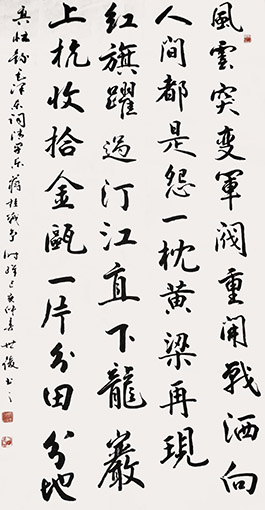 風雲突变軍閥重開戰洒向
人間都是怨一枕黄梁再現
红旗躍過汀江直下龍巖
上杭收拾金甌一片分田分地
真忙 錄毛泽东词清平乐蒋桂战争 己亥仲春 世俊书之